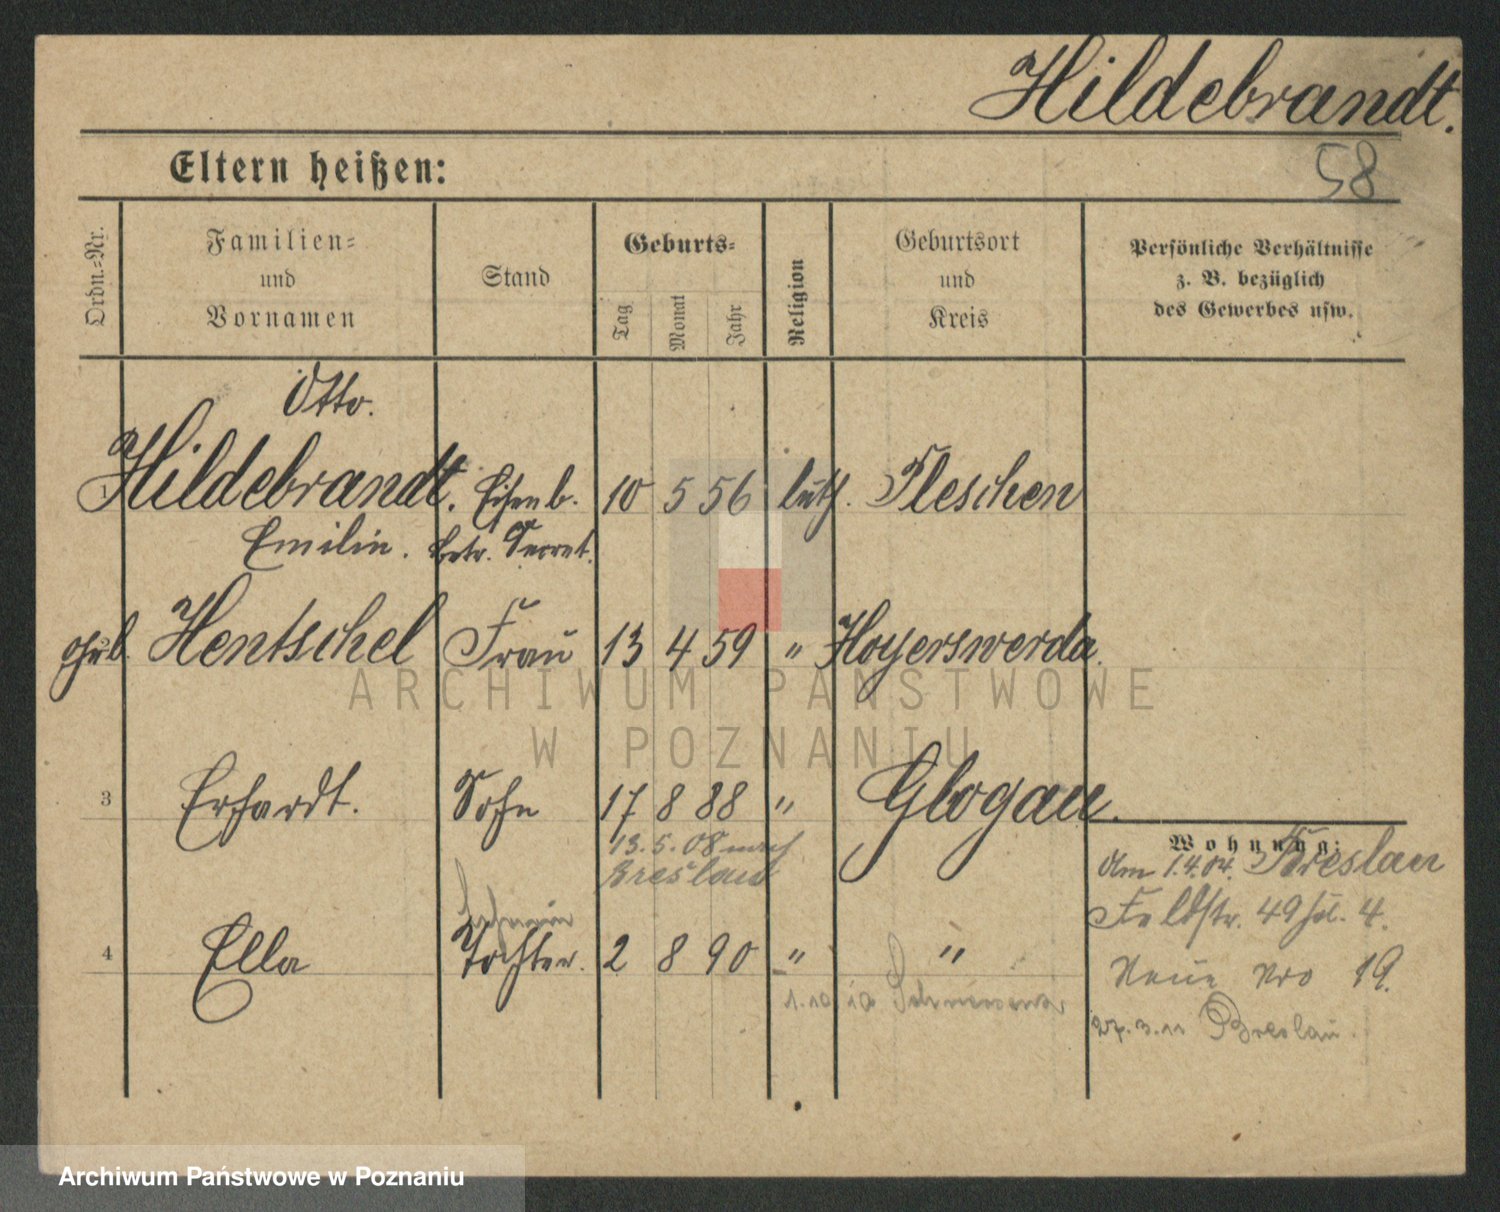 Hildebrandt.
58
Eltern heißen:
Ordn.-Nr.
Familien-
und
Vornamen
Stand
Geburts-
Tag
Monat
Jahr
Religion
Geburtsort
und
Kreis
Persönliche Verhältnisse
z. B. bezüglich
des Gewerbes usw.
Otto.
1 Hildebrandt. Eisenb. 10 5 56 luth. Pleschen
Emilie. Betr. Secret.
geb. Hentschel Frau 13 4 59 " Hoyerswerda.
3 Erhardt. Sohn 17 8 88 " Glogau.
13.5.08 nach
Breslau
4 Ella Tochter. 2 8 90 " "
1.10.10
Wohnung:
Am 1.4.04. Breslau
Feldstr. 49 4.
Neue Nro 19.
27.3.11 Breslau.
ARCHIWUM PAŃSTWOWE
W POZNANIU
Archiwum Państwowe w Poznaniu